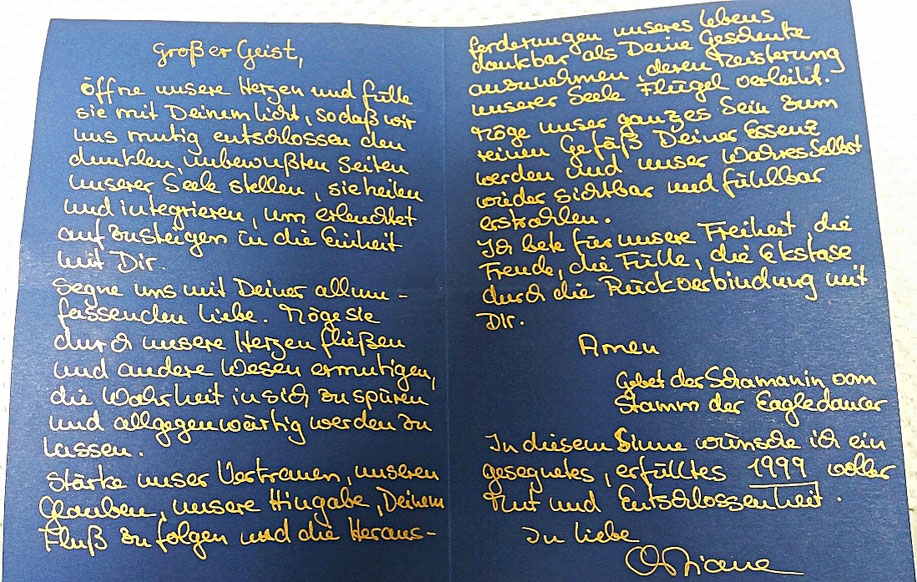 Großer Geist,
öffne unsere Herzen und fülle
sie mit Deinem Licht, sodaß wir
uns mutig entschlossen den
dunklen unbewußten Seiten
unserer Seele stellen, sie heilen
und integrieren, um erleuchtet
aufzusteigen in die Einheit
mit Dir.
Segne uns mit Deiner allum-
fassenden Liebe. Möge sie
durch unsere Herzen fließen
und andere Wesen ermutigen,
die Wahrheit in sich zu spüren
und allgegenwärtig werden zu
lassen.
Stärke unser Vertrauen, unseren
Glauben, unsere Hingabe, Deinem
Fluß zu folgen und die Heraus-
forderungen unseres Lebens
dankbar als Deine Geschenke
anzunehmen, deren Meisterung
unserer Seele Flügel verleiht.
Möge unser ganzes Sein zum
reinen Gefäß Deiner Essenz
werden und unser Wahres Selbst
wieder sichtbar und fühlbar
erstrahlen.
Ich bete für unsere Freiheit, die
Freude, die Fülle, die Ekstase
durch die Rückverbindung mit
Dir.
Amen
Gebet der Schamanin vom
Stamm der Eagledancer
In diesem Sinne wünsche ich ein
gesegnetes, erfülltes 1999 voller
Mut und Entschlossenheit.
In Liebe